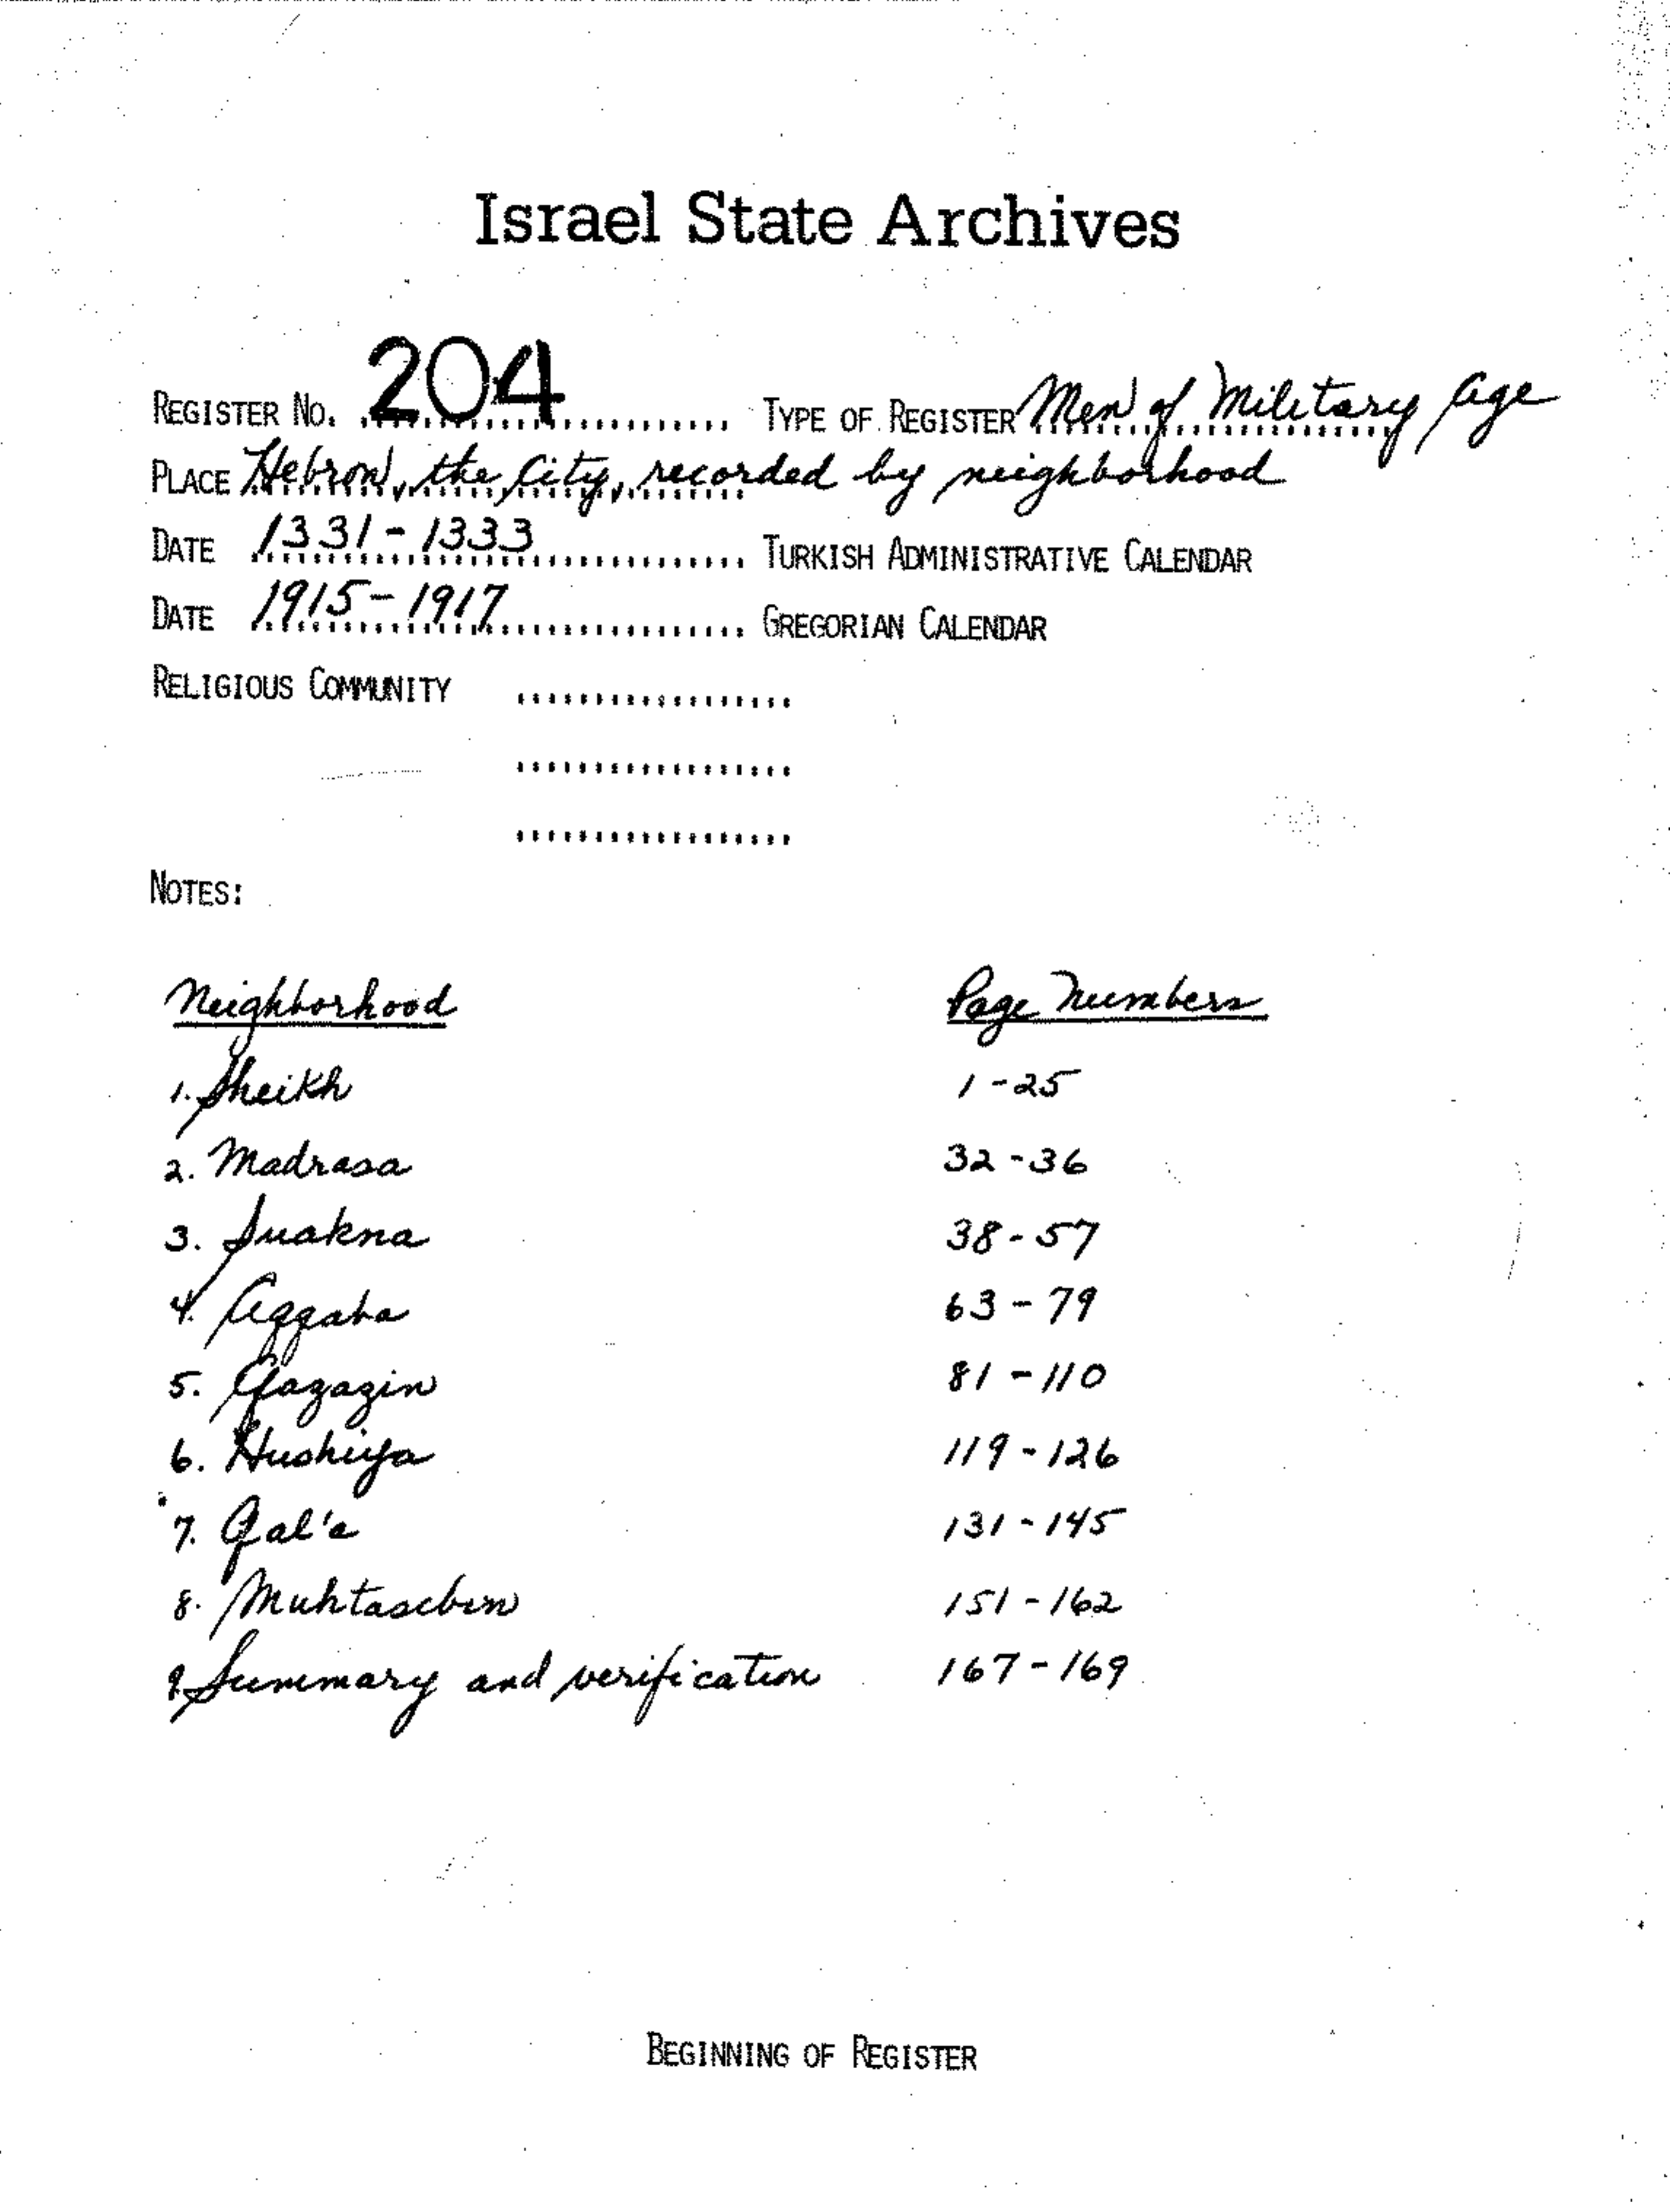 Israel State Archives
REGISTER NO. 204 TYPE OF REGISTER Men of Military Age
PLACE Hebron, the City, recorded by neighborhood
DATE 1331-1333 TURKISH ADMINISTRATIVE CALENDAR
DATE 1915-1917 GREGORIAN CALENDAR
RELIGIOUS COMMUNITY
NOTES:
Neighborhood Page Numbers
1. Sheikh 1-25
2. Madrasa 32-36
3. Suakna 38-57
4. Aqqaba 63-79
5. Qazazin 81-110
6. Hushiya 119-126
7. Qal'a 131-145
8. Muhtasebin 151-162
9. Summary and verification 167-169
BEGINNING OF REGISTER